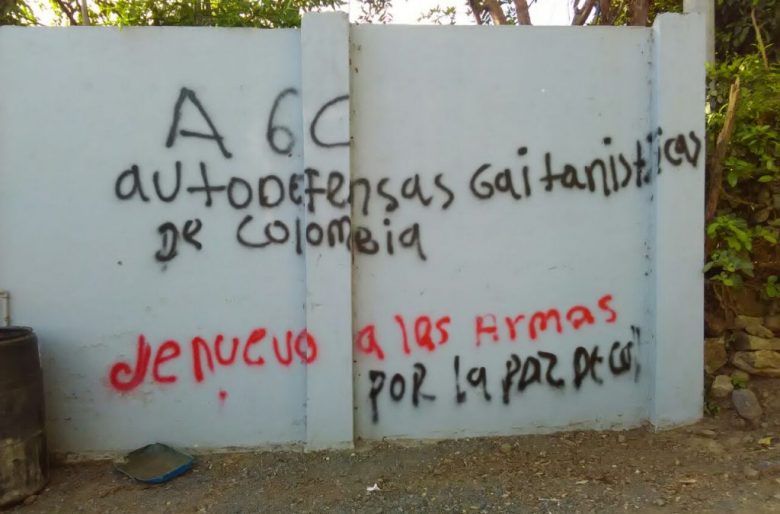 AGC
autodefensas Gaitanisticas
De Colombia
de nuevo a las Armas
POR la PAZ DE COl